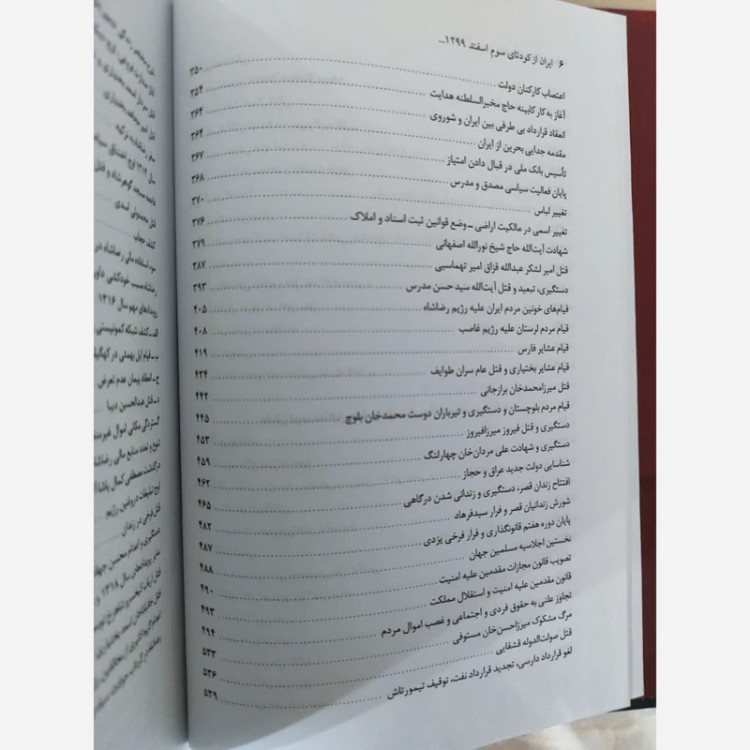 ۶ / ایران از کودتای سوم اسفند ۱۲۹۹...
اعتصاب کارکنان دولت ۳۵۰
آغاز به کار کابینه حاج مخبرالسلطنه هدایت ۳۵۴
انعقاد قرارداد بی طرفی بین ایران و شوروی ۳۶۴
مقدمه جدایی بحرین از ایران ۳۶۴
تأسیس بانک ملی در قبال دادن امتیاز ۳۶۷
پایان فعالیت سیاسی مصدق و مدرس ۳۶۸
تغییر لباس ۳۷۰
تغییر اسمی در مالکیت اراضی ــ وضع قوانین ثبت اسناد و املاک ۳۷۶
شهادت آیت‌الله حاج شیخ نورالله اصفهانی ۳۷۹
قتل امیر لشکر عبدالله قزاق امیر تهماسبی ۳۸۷
دستگیری، تبعید و قتل آیت‌الله سید حسن مدرس ۳۹۳
قیام‌های خونین مردم ایران علیه رژیم رضاشاه ۴۰۵
قیام مردم لرستان علیه رژیم غاصب ۴۰۸
قیام عشایر فارس ۴۱۹
قیام عشایر بختیاری و قتل عام سران طوایف ۴۳۴
قتل میرزامحمدخان برازجانی ۴۴۲
قیام مردم بلوچستان و دستگیری و تیرباران دوست محمدخان بلوچ ۴۴۵
دستگیری و قتل فیروز میرزافیروز ۴۵۳
دستگیری و شهادت علی مردان‌خان چهارلنگ ۴۵۹
شناسایی دولت جدید عراق و حجاز ۴۶۲
افتتاح زندان قصر، دستگیری و زندانی شدن درگاهی ۴۶۵
شورش زندانیان قصر و فرار سیدفرهاد ۴۸۲
پایان دوره هفتم قانونگذاری و فرار فرخی یزدی ۴۸۷
نخستین اجلاسیه مسلمین جهان ۴۸۸
تصویب قانون مجازات مقدمین علیه امنیت
قانون مقدمین علیه امنیت و استقلال مملکت ۴۹۰
تجاوز علنی به حقوق فردی و اجتماعی و غصب اموال مردم ۴۹۳
مرگ مشکوک میرزاحسن‌خان مستوفی ۴۹۴
قتل صولت‌الدوله قشقایی ۵۳۳
لغو قرارداد دارسی، تجدید قرارداد نفت، توقیف تیمورتاش ۵۳۶
۵۳۹
سفر رضاشاه به ترکیه
قتل محمدولی اسدی
کشف حجاب
رویدادهای مهم سال ۱۳۱۶
الف ـ کشف شبکه کمونیستی
ج ـ انعقاد پیمان عدم تعرض
د ـ قتل عبدالحسین دیبا
قتل فرخی در زندان